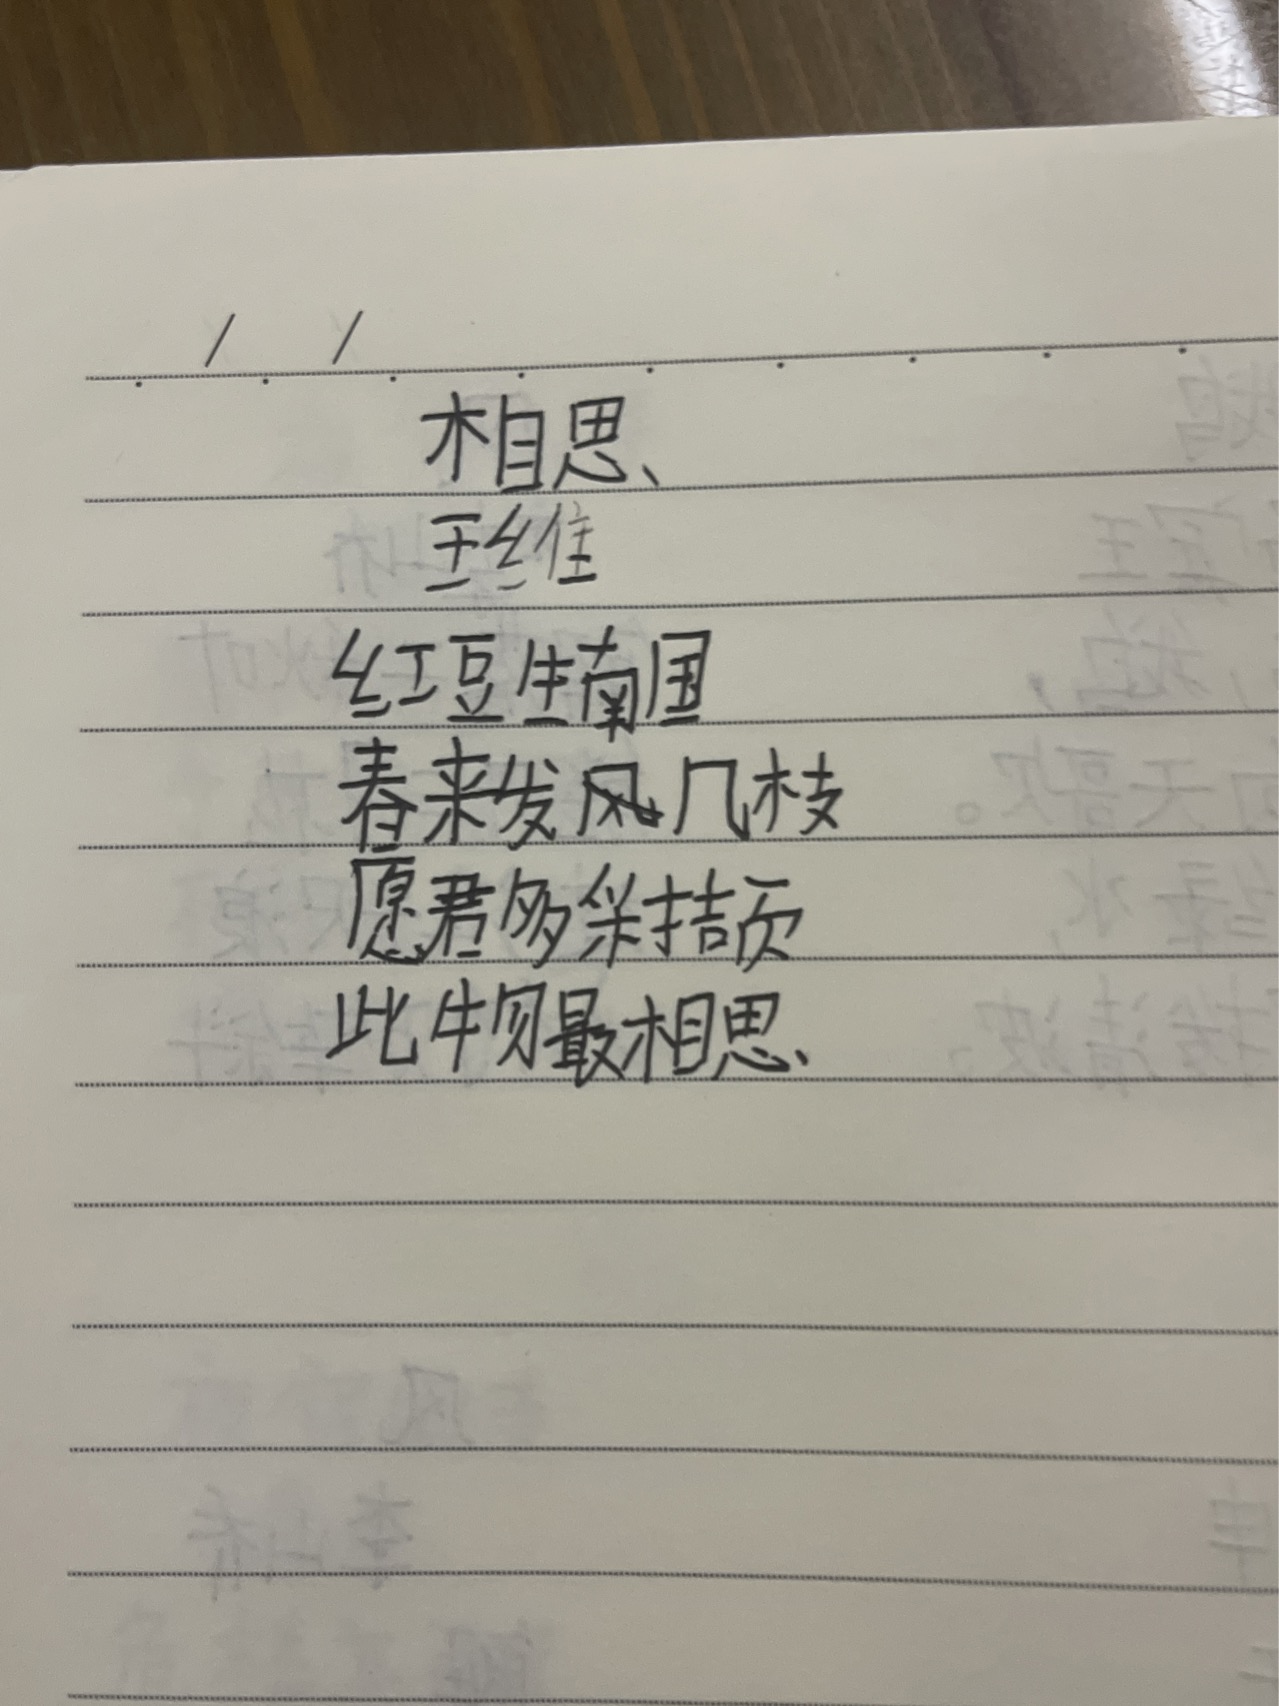 / /
相思
王维
红豆生南国
春来发风几枝
愿君多采拮页
此物最相思